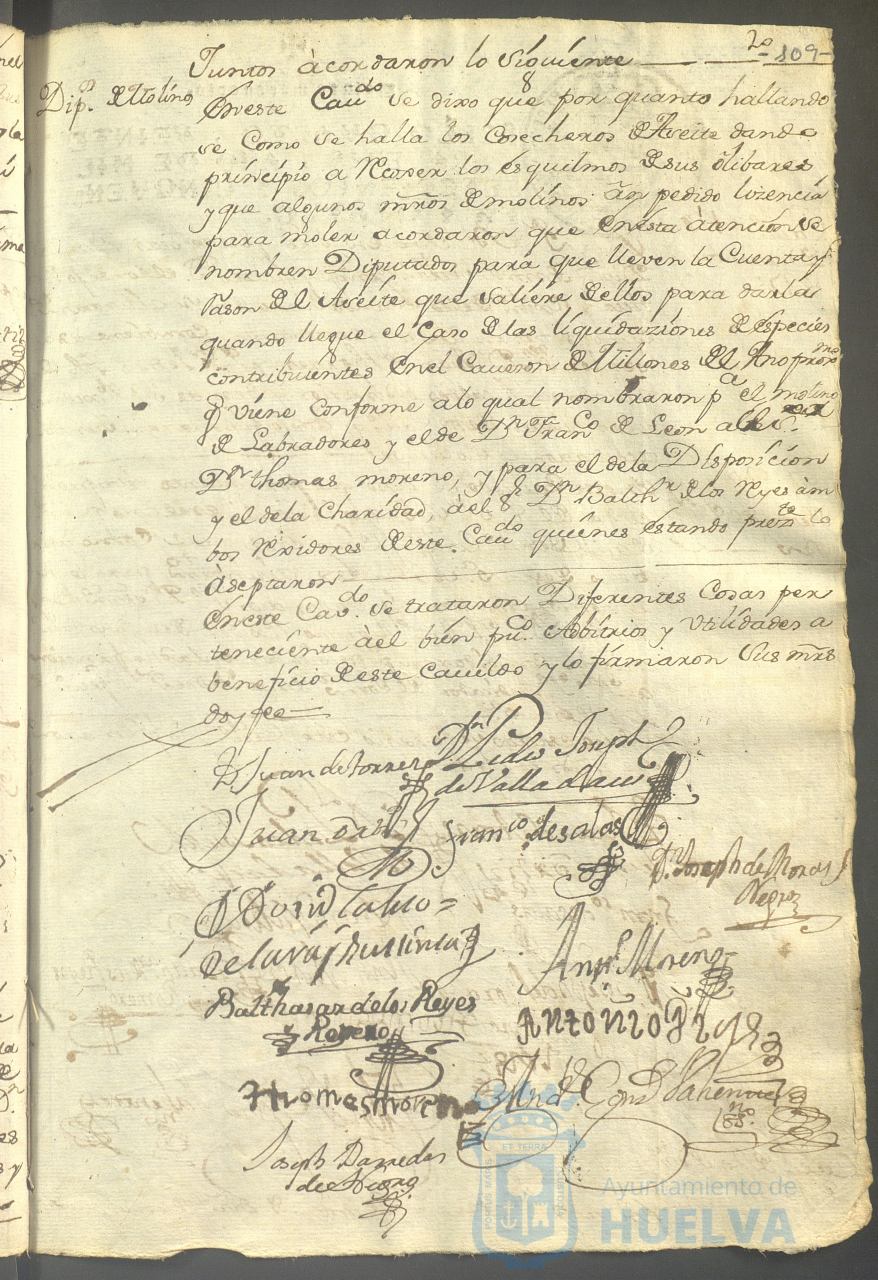 20 109
Juntos àcordaron lo siguiente
Dip.s de Molino
En este Cau.do se dixo que por quanto hallando
se como se halla los Cosecheros de Aseite dando
prinsipio a Recoser los esquilmos de sus olibares
y que algunos mros de molinos an pedido lizencia
para moler acordaron que en esta àtencion se
nombren Diputados para que lleven la Cuenta y
Rason del Aseite que saliere dellos para darla
quando llegue el Caso de las liquidaziones de especies
contribuientes en el Caueson de Millones del Año prox.mo
q viene conforme alo qual nombraron p.a el molino
de Labradores y el de D.n Fran.co de Leon al
D.n thomas moreno, y para el dela Disposicion
y el dela Charidad, àel s.r D.n Balth.r delos Reyes àm
bos Rexidores deste Cau.do quienes estando prez.tes lo
àseptaron
En este Cav.do se trataron Diferentes Cosas per
teneciente àel bien pu.co Arbitrios y Utilidades a
beneficio deste Cauildo y lo firmaron sus mrds
doy fee
D Juan de torres
D.n Pedro Joseph
de Valladares
Juan
Fran.co de salas
D.n Joseph de
Negro
Ant.o Moreno
Balthasar delos Reyes
Antonio
Thomas moreno
Joseph
Ayuntamiento de
HUELVA